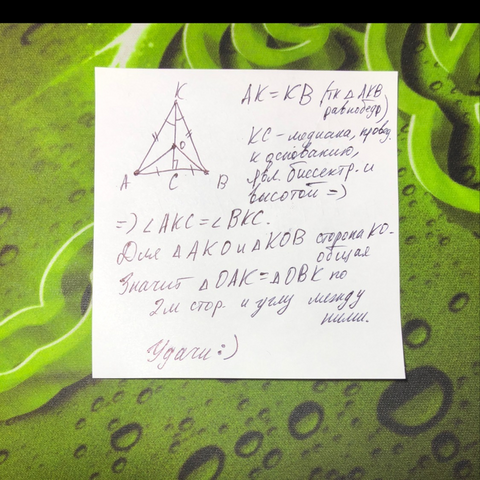 K
O
A C B
AK = KB (тк △ AKB
равнобедр)
KC - медиана, провед.
к основанию,
явл. биссектр. и
высотой =>
=> ∠AKC = ∠BKC.
Для △ AKO и △KOB сторона KO -
общая
Значит △ OAK = △OBK по
2м стор. и углу между
ними.
Удачи :)